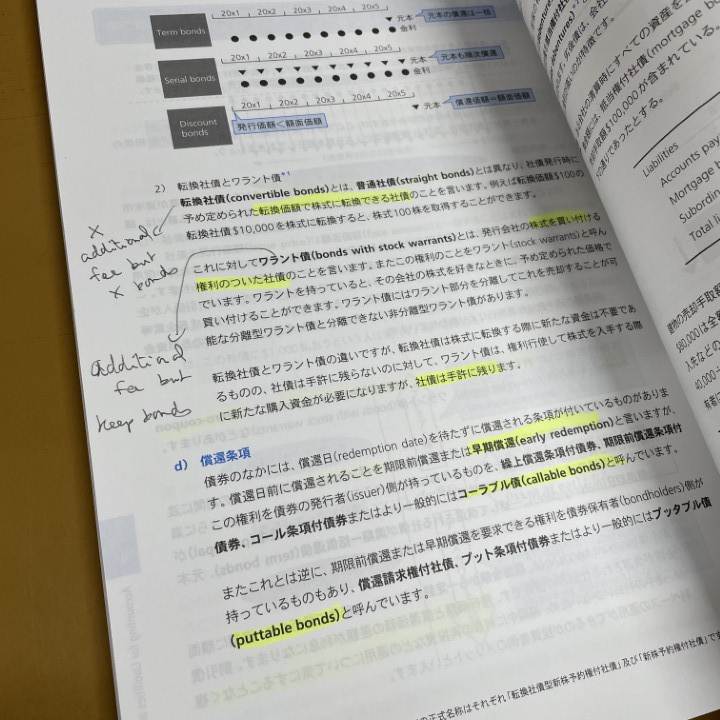 20x1 20x2 20x3 20x4 20x5
Term bonds
元本
元本の償還は一括
金利
20x1 20x2 20x3 20x4 20x5
Serial bonds
元本
元本も順次償還
金利
20x1 20x2 20x3 20x4 20x5
Discount bonds
元本
償還価額=額面価額
発行価額<額面価額
2) 転換社債とワラント債*1
転換社債(convertible bonds)とは、普通社債(straight bonds)とは異なり、社債発行時に
予め定められた転換価額で株式に転換できる社債のことを言います。例えば転換価額$100の
転換社債$10,000を株式に転換すると、株式100株を取得することができます。
×
additional
fee but
× bonds
これに対してワラント債(bonds with stock warrants)とは、発行会社の株式を買い付ける
権利のついた社債のことを言います。またこの権利のことをワラント(stock warrants)と呼ん
でいます。ワラントを持っていると、その会社の株式を好きなときに、予め定められた価格で
買い付けることができます。ワラント債にはワラント部分を分離してこれを売却することが可
能な分離型ワラント債と分離できない非分離型ワラント債があります。
additional
fee but
keep bonds
転換社債とワラント債の違いですが、転換社債は株式に転換する際に新たな資金は不要であ
るものの、社債は手許に残らないのに対して、ワラント債は、権利行使して株式を入手する際
に新たな購入資金が必要になりますが、社債は手許に残ります。
d) 償還条項
債券のなかには、償還日(redemption date)を待たずに償還される条項が付いているものがありま
す。償還日前に償還されることを期限前償還または早期償還(early redemption)と言いますが、
この権利を債券の発行者(issuer)側が持っているものを、繰上償還条項付債券、期限前償還条項付
債券、コール条項付債券またはより一般的にはコーラブル債(callable bonds)と呼んでいます。
またこれとは逆に、期限前償還または早期償還を要求できる権利を債券保有者(bondholders)側が
持っているものもあり、償還請求権付社債、プット条項付債券またはより一般的にはプッタブル債
(puttable bonds)と呼んでいます。
の正式名称はそれぞれ「転換社債型新株予約権付社債」及び「新株予約権付社債」で
(mortgage bo
$100,000が含まれている。
Liabilities
Accounts pay
Mortgage
Subordin
Total l